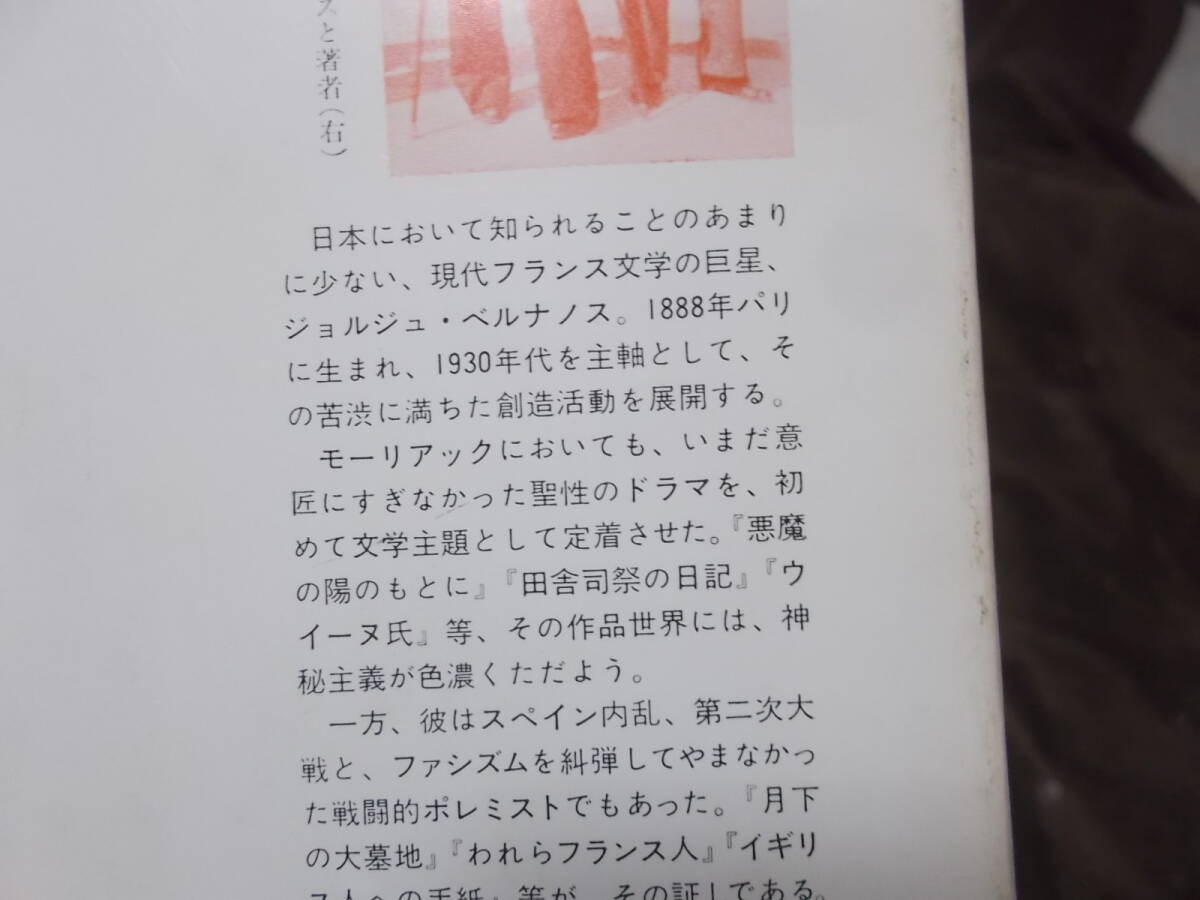 スと著者(右)
日本において知られることのあまり
に少ない、現代フランス文学の巨星、
ジョルジュ・ベルナノス。1888年パリ
に生まれ、1930年代を主軸として、そ
の苦渋に満ちた創造活動を展開する。
モーリアックにおいても、いまだ意
匠にすぎなかった聖性のドラマを、初
めて文学主題として定着させた。『悪魔
の陽のもとに』『田舎司祭の日記』『ウ
イーヌ氏』等、その作品世界には、神
秘主義が色濃くただよう。
一方、彼はスペイン内乱、第二次大
戦と、ファシズムを糾弾してやまなかっ
た戦闘的ポレミストでもあった。『月下
の大墓地』『われらフランス人』『イギリ
ス人への手紙』等が、その証しである。